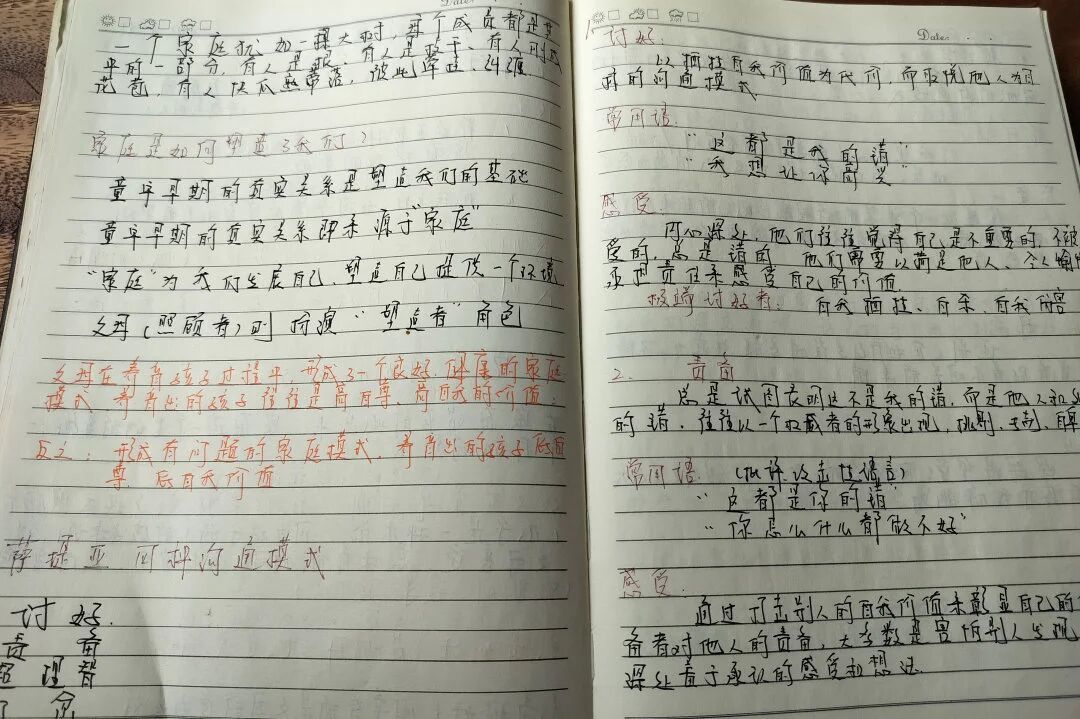 Date:
一个家庭犹如一棵大树,每个成员都是其
中的一部分,有人是根,有人是叶子、有人则或
花苞,有人快瓜熟蒂落,彼此牵连、纠缠
家庭是如何塑造了我们?
童年早期的真实关系是塑造我们的基础
童年早期的真实关系即来源于"家庭"
"家庭"为我们发展自己、塑造自己提供一个环境
父母(照顾者)则扮演"塑造者"角色
父母在养育孩子过程中,形成了一个良好、健康的家庭
模式,养育出的孩子往往是高自尊、高自我的价值;
反之:形成有问题的家庭模式,养育出的孩子低自
尊、低自我价值
萨提亚四种沟通模式
讨好
责备
超理智
Date:
1.讨好:
以牺牲自我价值为代价,而取悦他人为目
的沟通模式.
常用语:
"这都是我的错"
"我想让你高兴"
感受:
内心深处,他们往往觉得自己是不重要的,不被
受的,总是错的 他们需要以满足他人、令人愉
承担责任来感受自己的价值
极端讨好者:自我牺牲、自杀、自我伤害
2. 责备
总是试图表明这不是我的错,而是他人和
的错,往往以一个权威者的形象出现,挑剔、
常用语:(批评攻击性语言)
"这都是你的错"
"你怎么什么都做不好"
感受:
通过打击别人的自我价值来彰显自己的
备者对他人的责备,大多数是害怕别人发现
深处羞于承认的感受和想法